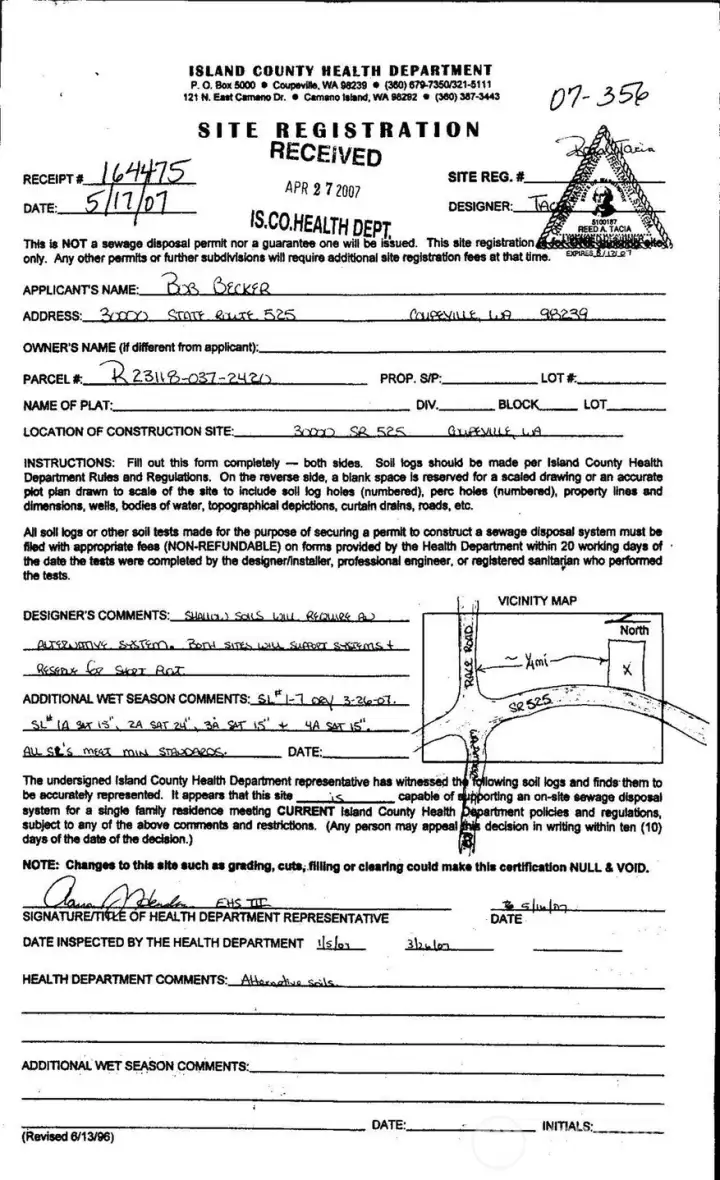 ISLAND COUNTY HEALTH DEPARTMENT
P. O. Box 5000 ● Coupeville, WA 98239 ● (360) 679-7350/321-5111
121 N. East Camano Dr. ● Camano Island, WA 98292 ● (360) 387-3443
07-356
SITE REGISTRATION
RECEIVED
APR 27 2007
IS.CO.HEALTH DEPT.
RECEIPT # 164475
SITE REG. #
DATE: 5/17/07
DESIGNER: TAC
5100187
REED A. TACIA
EXPIRES 8/12/07
This is NOT a sewage disposal permit nor a guarantee one will be issued. This site registration
only. Any other permits or further subdivisions will require additional site registration fees at that time.
APPLICANT'S NAME: BOB BECKER
ADDRESS: 30000 STATE ROUTE 525 COUPEVILLE, WA 98239
OWNER'S NAME (if different from applicant):
PARCEL #: R23118-037-2420 PROP. S/P: LOT #:
NAME OF PLAT: DIV. BLOCK LOT
LOCATION OF CONSTRUCTION SITE: 30000 SR 525 COUPEVILLE, WA
INSTRUCTIONS: Fill out this form completely — both sides. Soil logs should be made per Island County Health
Department Rules and Regulations. On the reverse side, a blank space is reserved for a scaled drawing or an accurate
plot plan drawn to scale of the site to include soil log holes (numbered), perc holes (numbered), property lines and
dimensions, wells, bodies of water, topographical depictions, curtain drains, roads, etc.
All soil logs or other soil tests made for the purpose of securing a permit to construct a sewage disposal system must be
filed with appropriate fees (NON-REFUNDABLE) on forms provided by the Health Department within 20 working days of
the date the tests were completed by the designer/installer, professional engineer, or registered sanitarian who performed
the tests.
VICINITY MAP
North
RACE ROAD
~ 1/4 mi
X
SR 525
DESIGNER'S COMMENTS: SHALLOW SOILS WILL REQUIRE AN
ALTERNATIVE SYSTEM. BOTH SITES WILL SUPPORT SYSTEMS +
RESERVE FOR SHORT PLAT.
ADDITIONAL WET SEASON COMMENTS: SL# 1-7 DRY 3-26-07.
SL# 1A SAT 15", 2A SAT 24", 3A SAT 15" + 4A SAT 15".
ALL SL'S MEET MIN STANDARDS. DATE:
The undersigned Island County Health Department representative has witnessed the following soil logs and finds them to
be accurately represented. It appears that this site is capable of supporting an on-site sewage disposal
system for a single family residence meeting CURRENT Island County Health Department policies and regulations,
subject to any of the above comments and restrictions. (Any person may appeal this decision in writing within ten (10)
days of the date of the decision.)
NOTE: Changes to this site such as grading, cuts, filling or clearing could make this certification NULL & VOID.
EHS III 5/16/07
SIGNATURE/TITLE OF HEALTH DEPARTMENT REPRESENTATIVE DATE
DATE INSPECTED BY THE HEALTH DEPARTMENT 1/5/07 3/26/07
HEALTH DEPARTMENT COMMENTS: Alternative soils.
ADDITIONAL WET SEASON COMMENTS:
DATE: INITIALS:
(Revised 6/13/96)